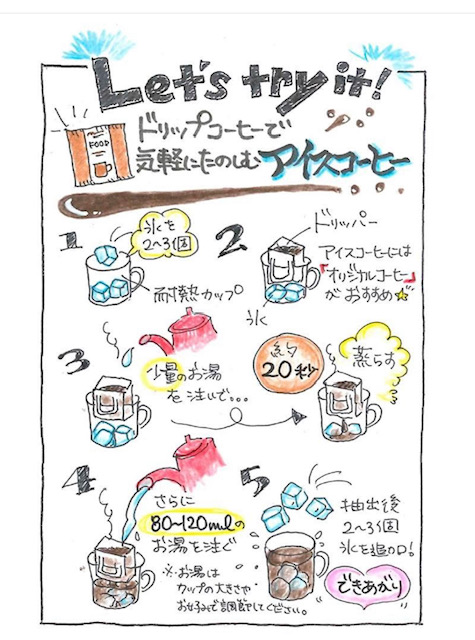 Let's try it!
FOOD
ドリップコーヒーで
気軽にたのしむ アイスコーヒー
1
氷を
2~3個
耐熱カップ
2
ドリッパー
アイスコーヒーには
「オリジナルコーヒー」
がおすすめ
氷
3
少量のお湯
を注いで...
約
20秒
蒸らす
4
さらに
80~120mlの
お湯を注ぐ
※・お湯は
カップの大きさや
お好みで調節してください。
5
抽出後
2~3個
氷を追加!
できあがり